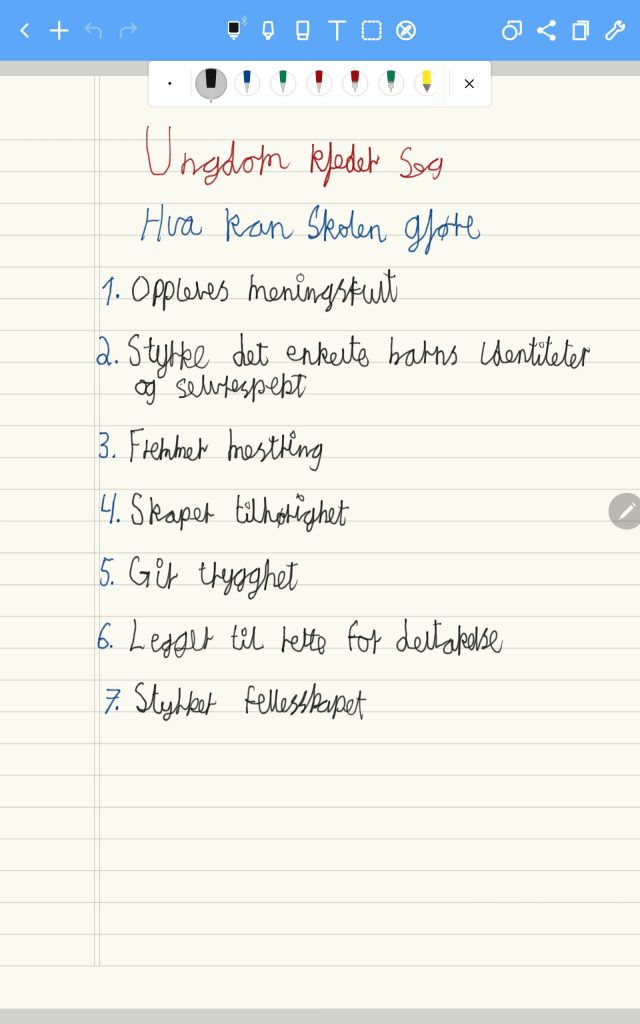 Ungdom kjeder seg
Hva kan Skolen gjøre
1. Oppleves meningsfult
2. Styrke det enkelte barns identiteter
og selvrespekt
3. Fremmer mestring
4. Skaper tilhørighet
5. Gir trygghet
6. Legger til rette for deltakelse
7. Styrker fellesskapet